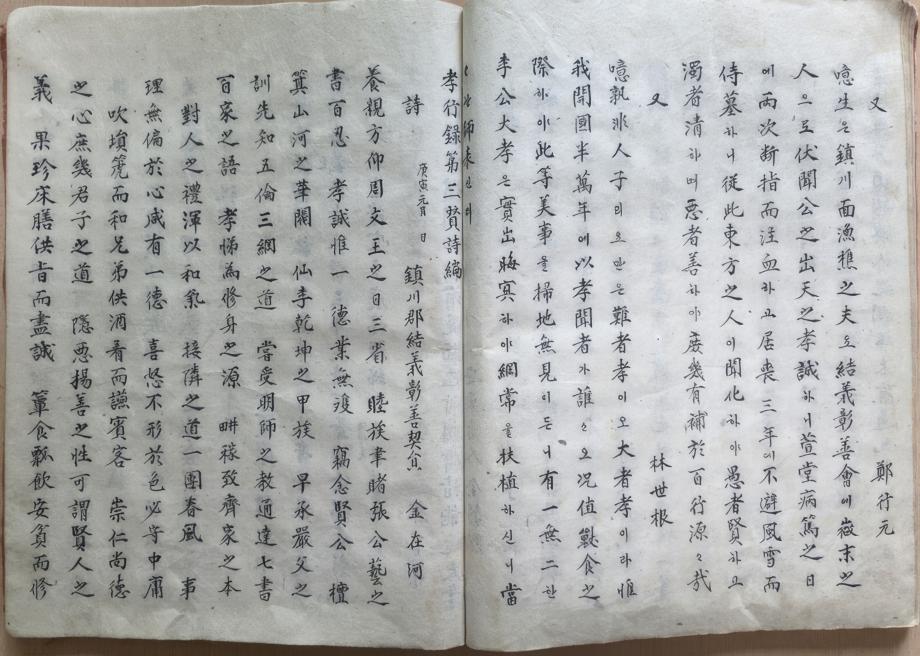 又 鄭行元
噫生은鎭川面漁樵之夫로結義彰善會에嶶末之
人으로伏聞公之出天之孝誠하니萱堂病篤之日
에兩次断指而注血하고居喪三年에不避風雪而
侍墓하니從此東方之人이聞化하야愚者賢하고
濁者淸하며惡者善하야庶幾有補於百行源之哉
又 林世根
噫孰非人子리오만은難者孝이오大者孝이라惟
我開國半萬年에以孝聞者가誰오况值獸食之
際하야此等美事을掃地無見이든니有一無二한
李公大孝은實出晦冥하야綱常을扶植하신니當
師表신더
孝行錄第三賛詩編
詩 庚寅元月 日 鎭川郡結義彰善契員 金在河
養親方仰周文王之日三省 睦族聿睹張公藝之
書百忍 孝誠惟一 德業無䨥 竊念賢公 檀
箕山河之華閥 仙李乾坤之甲族 早承嚴父之
訓先知五倫三綱之道 當受明師之敎通達七書
百家之語 孝悌為修身之源 耕稼致齊家之本
對人之禮渾以和氣 接隣之道一團春風 事
理無偏於心咸有一德 喜怒不形於色必守中庸
吹塤篪而和兄弟供酒肴而讌賓客 崇仁尚德
之心庶幾君子之道 隱惡揚善之性可謂賢人之
義 果珍床膳供旨而盡誠 簞食瓢飮安貧而修